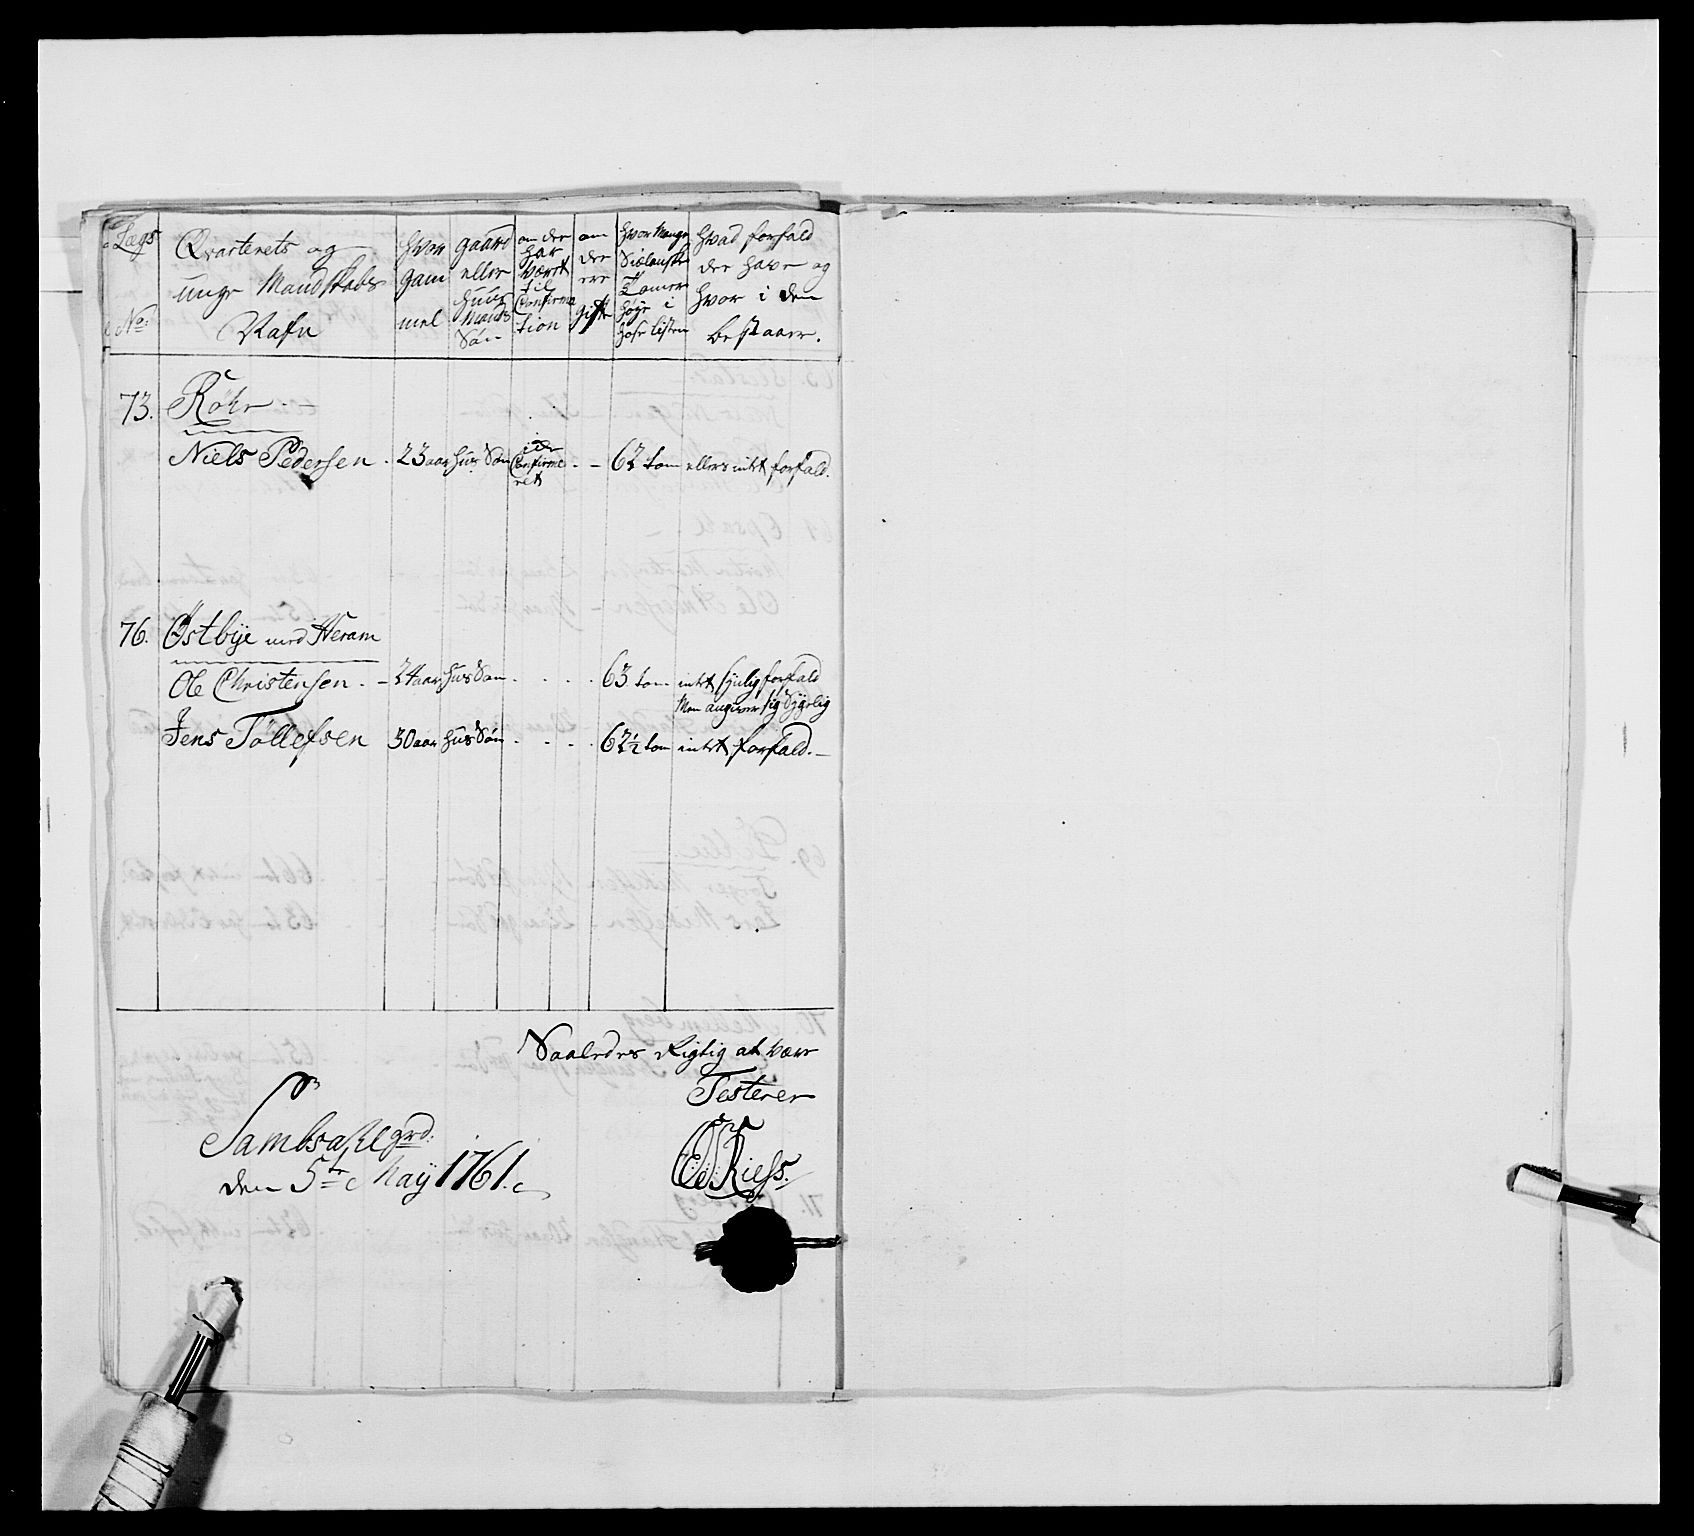 Lægs No:
Qvarterets og unge Mandskabs Nafn
hvor gam mel
gaard eller huus Mands Søn
om de har været til Confirma tion
om de ere gift
hvor Mange Siælanske Tomer høye i hose listen
hvad forfald de have og hvor i dem bestaaer.
73. Røhr
Niels Pedersen. 23 aar hus Søn Confirme ret - 62 tom ellers intet forfald.
76. Østbye med Heram
Ole Christensen. - 24 aar hus Søn . . . . 63 tom intet synlig forfald
Men angiver sig Sygelig
Jens Tøllefsen 30 aar hus Søn . . . . 62½ tom intet forfald. -
Saaledes Rigtig at være
Testerer
Sambsahl grd:
den 5te May 1761.
Riess.